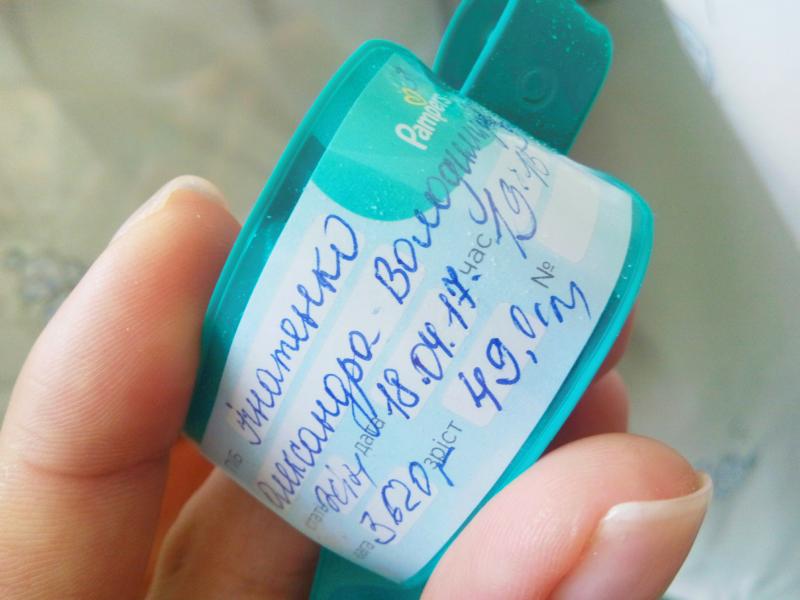 Pampers
ПІБ Ігнатенко
Олександра Володимир
стать жін дата 18.04.17. час 19:18
вага 3620 г зріст 49,0 см №